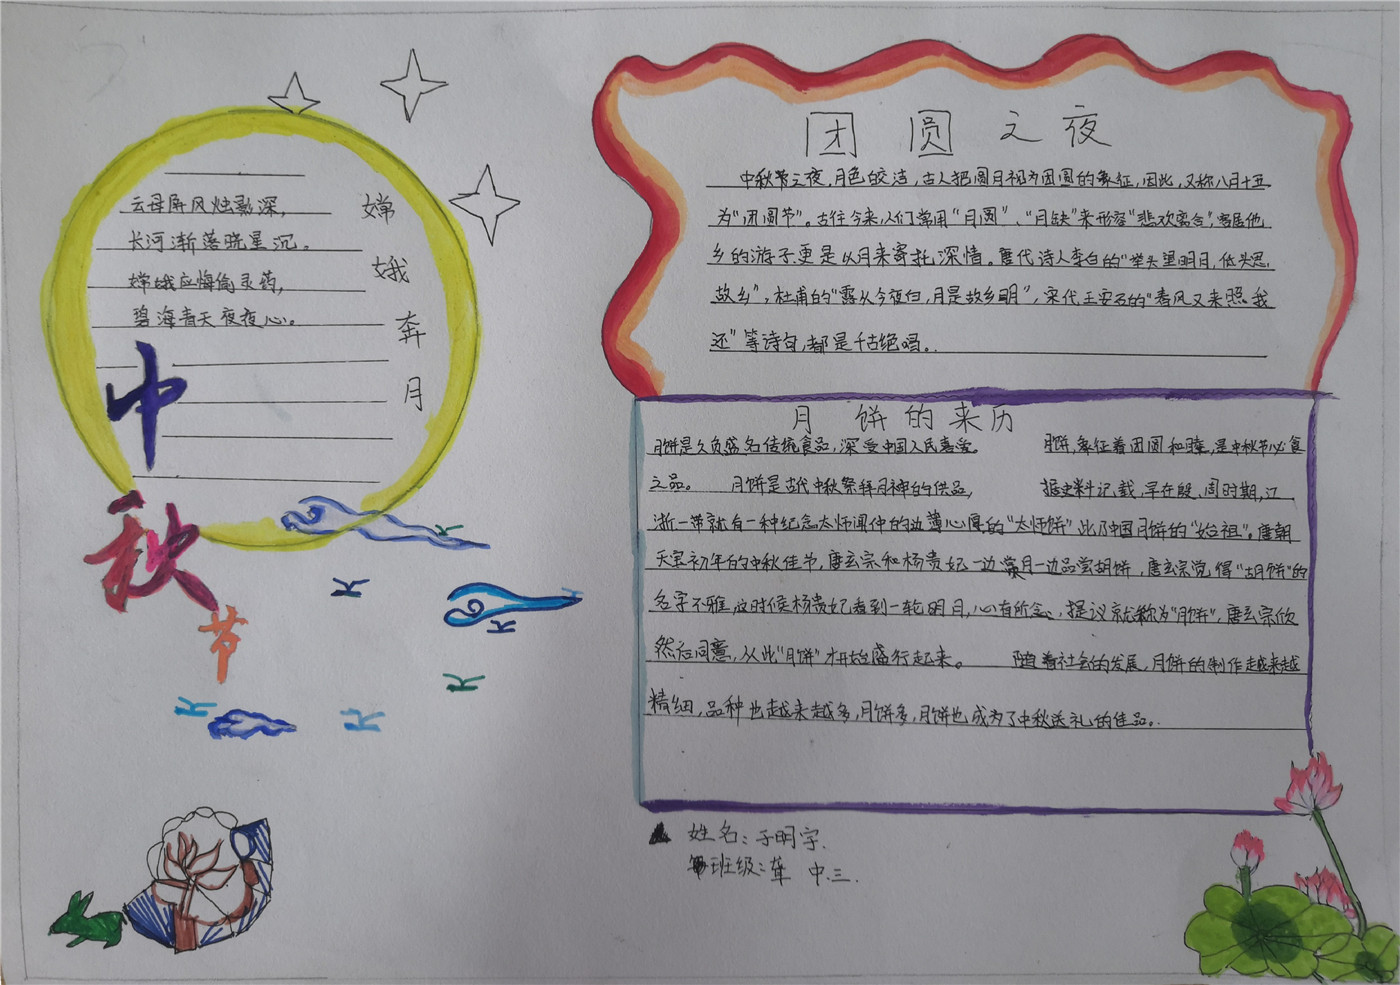 云母屏风烛影深，
长河渐落晓星沉。
嫦娥应悔偷灵药，
碧海青天夜夜心。
嫦娥奔月
中秋节
团圆之夜
中秋节之夜，月色皎洁，古人把圆月视为团圆的象征，因此，又称八月十五
为“团圆节”。古往今来，人们常用“月圆”、“月缺”来形容“悲欢离合”，客居他
乡的游子更是以月来寄托深情。唐代诗人李白的“举头望明月，低头思
故乡”，杜甫的“露从今夜白，月是故乡明”，宋代王安石的“春风又来照我
还”等诗句，都是千古绝唱。
月饼的来历
月饼是久负盛名传统食品，深受中国人民喜爱。 月饼，象征着团圆和睦，是中秋节必食
之品。 月饼是古代中秋祭拜月神的供品， 据史料记载，早在殷、周时期，江
浙一带就有一种纪念太师闻仲的边薄心厚的“太师饼”此乃中国月饼的“始祖”。唐朝
天宝初年的中秋佳节，唐玄宗和杨贵妃一边赏月一边品尝胡饼，唐玄宗觉得“胡饼”的
名字不雅，这时侯杨贵妃看到一轮明月，心有所念，提议就称为“月饼”，唐玄宗欣
然后同意，从此“月饼”才开始盛行起来。 随着社会的发展，月饼的制作越来越
精细，品种也越来越多，月饼多，月饼也成为了中秋送礼的佳品。
姓名：于明宇.
班级：聋 中三.